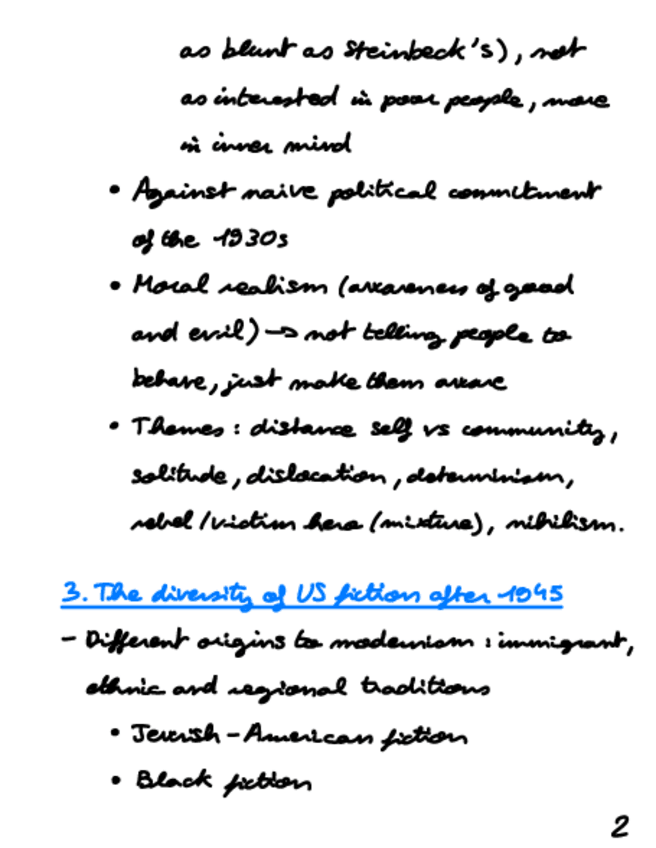 as blunt as Steinbeck's), not
as interested in poor people, more
in inner mind
• Against naive political commitment
of the 1930s
• Moral realism (awareness of good
and evil) → not telling people to
behave, just make them aware
• Themes : distance self vs community,
solitude, dislocation, determinism,
rebel/victim hero (mixture), nihilism.
3. The diversity of US fiction after 1945
- Different origins to modernism : immigrant,
ethnic and regional traditions
• Jewish-American fiction
• Black fiction
2